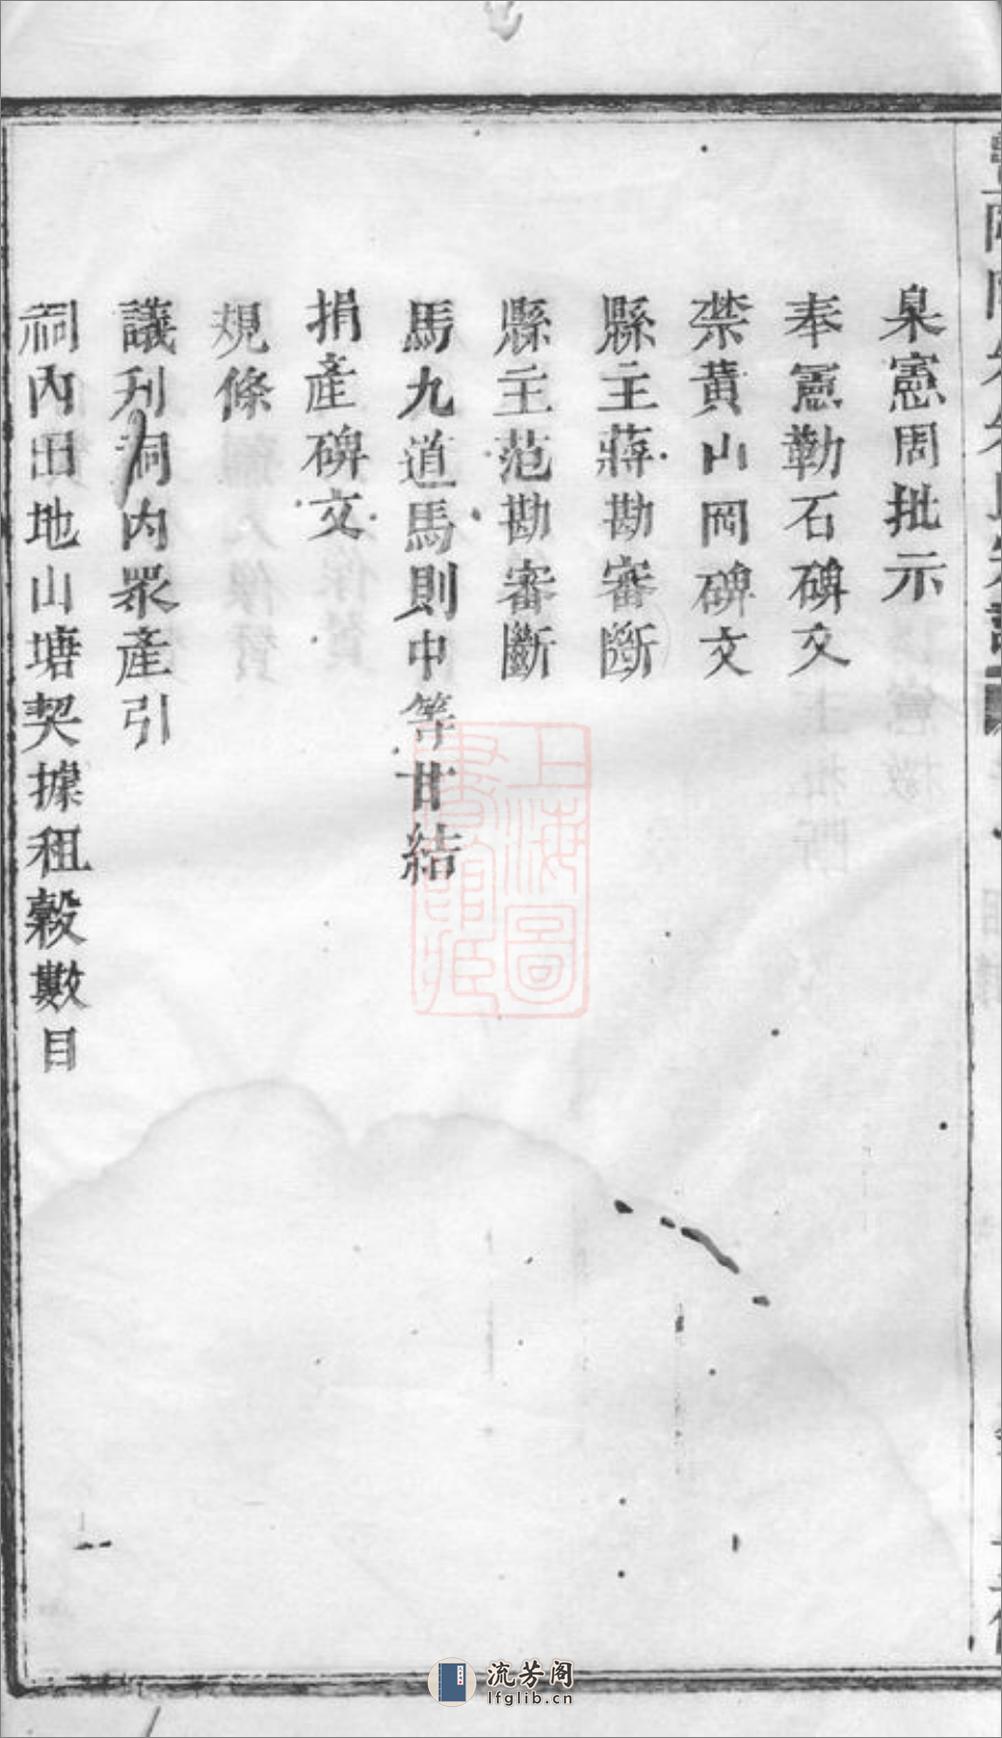 臬憲周批示
奉憲勒石碑文
禁黃山岡碑文
縣主蔣勘審斷
縣主范勘審斷
馬九道馬則中等甘結
捐產碑文
規條
議刋祠內眾產引
祠內田地山塘契據租穀數目
上海圖書館藏
流芳阁
lfglib.cn